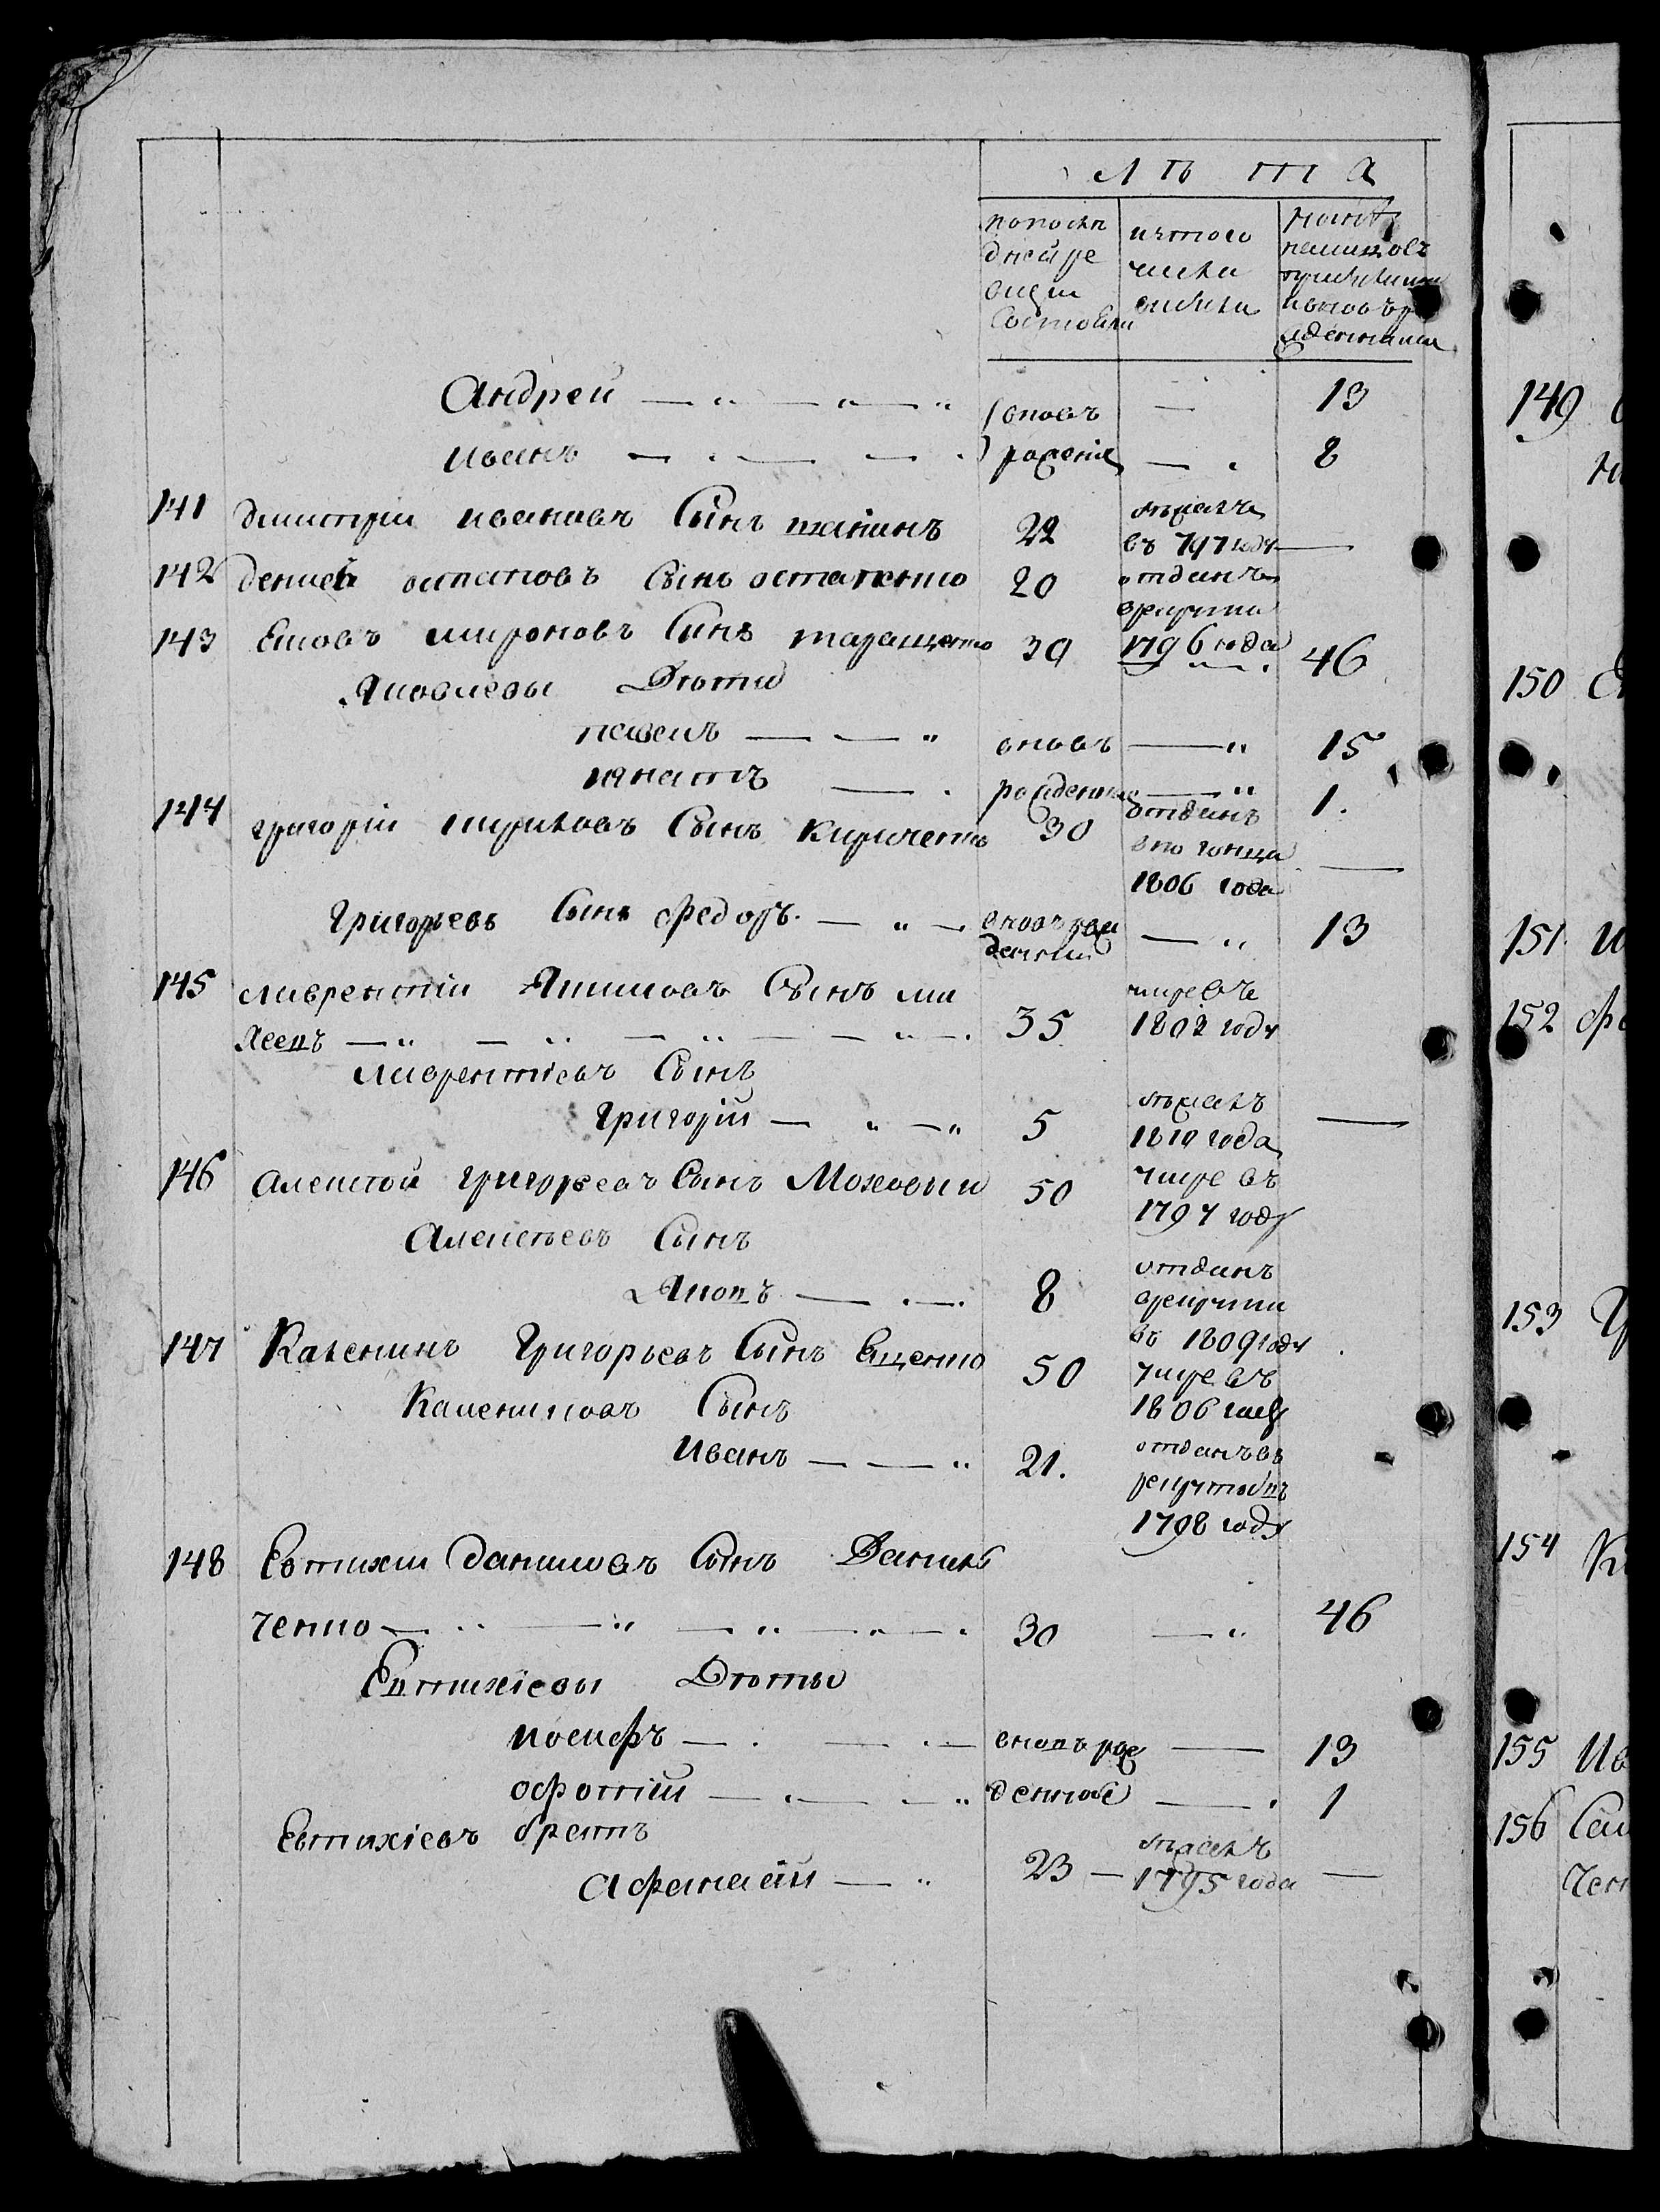 лѣта
попослѣ дней ре визіи состояли
исътого числа выбыли
нынѣ налицо съ прибылыми и вновь рожденными
Андрей — „ — „ — „ вновь — 13
иванъ — „ — — „ рожденіе — „ 8
141 димитрій ивановъ Сынъ 22 бѣжалъ въ 797 году —
142 денисей остаповъ Сынъ остапенко 20 отданъ врекрути 1796 года
143 Ековъ мироновъ Сынъ таращенко 39 — „ — 46
Яковлевы Дѣти
павелъ — — „ вновь — „ 15
игнатъ — „ рожденные — „ 1.
144 григорій кириловъ Сынъ Кириченко 30 отданъ 1806 года —
Григорьевъ Сынъ Федоръ — „ — вновь рож денный — „ 13
145 лаврентій Якимовъ Сынъ ми
хеевъ — „ — „ — „ — — „ — 35 умре въ 1802 году
лаврентіевъ Сынъ
Григорій — „ — „ 5 бѣжалъ 1810 года —
146 Алексѣй григорьевъ Сынъ Моховый 50 умре въ 1797 году
Алексѣевъ Сынъ
Яковъ — „ — 8 отданъ врекрути въ 1809 году
147 Каленикъ Григорьевъ Сынъ Ещенко 50 умре въ 1806 году
Калениковъ Сынъ
Иванъ — — „ 21. отданъ въ рекруты въ 1798 году
148 Евтихій даниловъ Сынъ Данил
ченко — „ — „ — „ — „ — „ 30 — „ 46
Евтихіевы Дѣти
иосифъ — „ — „ — вновь рож — 13
офотій — „ — — „ денное — „ 1
Евтихіевъ братъ
Афанасій — „ 23 — бѣжалъ 1795 года —
149
150
151
152
153
154
155 Ив
156
Чен